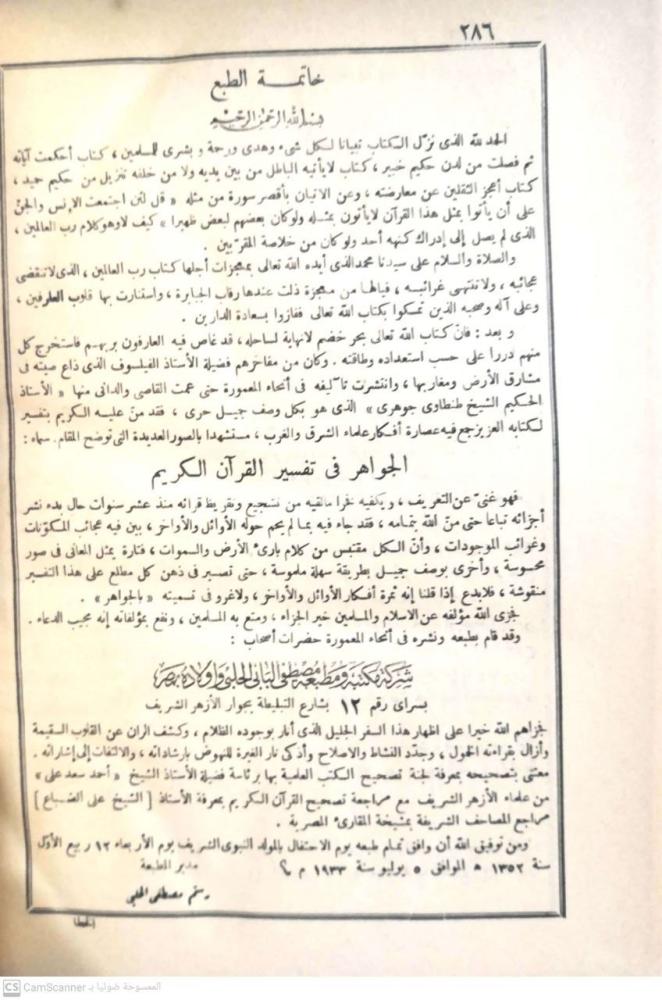 ٢٨٦
خاتمة الطبع
بسم الله الرحمن الرحيم
الحمد لله الذى نزّل الكتاب تبيانا لكل شىء وهدى ورحمة وبشرى للمسلمين ، كتاب أحكمت آياته
ثم فصلت من لدن حكيم خبير ، كتاب لا يأتيه الباطل من بين يديه ولا من خلفه تنزيل من حكيم حميد ،
كتاب أعجز الثقلين عن معارضته ، وعن الاتيان بأقصر سورة من مثله « قل لئن اجتمعت الإنس والجنّ
على أن يأتوا بمثل هذا القرآن لا يأتون بمثله ولو كان بعضهم لبعض ظهيرا » كيف لا وهو كلام رب العالمين ،
الذى لم يصل إلى إدراك كنهه أحد ولو كان من خلاصة المقرّبين .
والصلاة والسلام على سيدنا محمد الذى أيده الله تعالى بمعجزات أجلها كتاب رب العالمين ، الذى لا تنقضى
عجائبه ، ولا تنتهى غرائبه ، فيالها من معجزة ذلت عندها رقاب الجبابرة ، واستنارت بها قلوب العارفين ،
وعلى آله وصحبه الذين تمسكوا بكتاب الله تعالى ففازوا بسعادة الدارين .
و بعد : فانّ كتاب الله تعالى بحر خضم لا نهاية لساحله ، قد غاص فيه العارفون بربهم فاستخرج كل
منهم دررا على حسب استعداده وطاقته . وكان من مفاخرهم فضيلة الأستاذ الفيلسوف الذى ذاع صيته فى
مشارق الأرض ومغاربها ، وانتشرت تآليفه فى أنحاء المعمورة حتى عمت القاصى والدانى منها « الأستاذ
الحكيم الشيخ طنطاوى جوهرى » الذى هو بكل وصف جميل حرى ، فقد منّ عليه الكريم بتفسير
لكتابه العزيز جمع فيه عصارة أفكار علماء الشرق والغرب ، مستشهدا بالصور العديدة التى توضح المقام . سماه :
الجواهر فى تفسير القرآن الكريم
فهو غنىّ عن التعريف ، ويكفيه فخرا مالقيه من تشجيع وتقريظ قرائه منذ عشر سنوات حال بدء نشر
أجزائه تباعا حتى منّ الله بتمامه ، فقد جاء فيه بما لم يحم حوله الأوائل والأواخر ، بين فيه عجائب المكوّنات
وغرائب الموجودات ، وأنّ الكل مقتبس من كلام بارئ الأرض والسموات ، فتارة يمثل المعانى فى صور
محسوسة ، وأخرى بوصف جميل بطريقة سهلة ملموسة ، حتى تصير فى ذهن كل مطلع على هذا التفسير
منقوشة ، فلا بدع إذا قلنا إنه ثمرة أفكار الأوائل والأواخر ، ولا غرو فى تسميته « بالجواهر » .
فجزى الله مؤلفه عن الاسلام والمسلمين خير الجزاء ، ومتع به المسلمين ، ونفع بمؤلفاته إنه مجيب الدعاء .
وقد قام بطبعه ونشره فى أنحاء المعمورة حضرات أصحاب :
شركة مكتبة ومطبعة مصطفى البابى الحلبى وأولاده بمصر
بسراى رقم ١٢ بشارع التبليطة بجوار الأزهر الشريف
فجزاهم الله خيرا على اظهار هذا السفر الجليل الذى أنار بوجوده الظلام ، وكشف الران عن القلوب السقيمة
وأزال بقراءته الخمول ، وجدّد النشاط والاصلاح وأذكى نار الغيرة للنهوض بارشاداته ، والالتفات إلى إشاراته .
معتنى بتصحيحه بمعرفة لجنة تصحيح الكتب العلمية بها برئاسة فضيلة الأستاذ الشيخ « أحمد سعد على »
من علماء الأزهر الشريف مع مراجعة تصحيح القرآن الكريم بمعرفة الأستاذ [ الشيخ على الضباع ]
مراجع المصاحف الشريفة بمشيخة المقارئ المصرية .
ومن توفيق الله أن وافق تمام طبعه يوم الاحتفال بالمولد النبوى الشريف يوم الأربعاء ١٢ ربيع الأوّل
سنة ١٣٥٢ ه الموافق ٥ يوليو سنة ١٩٣٣ م
مدير المطبعة
رستم مصطفى الحلبى
الممسوحة ضوئيا بـ CamScanner
CS